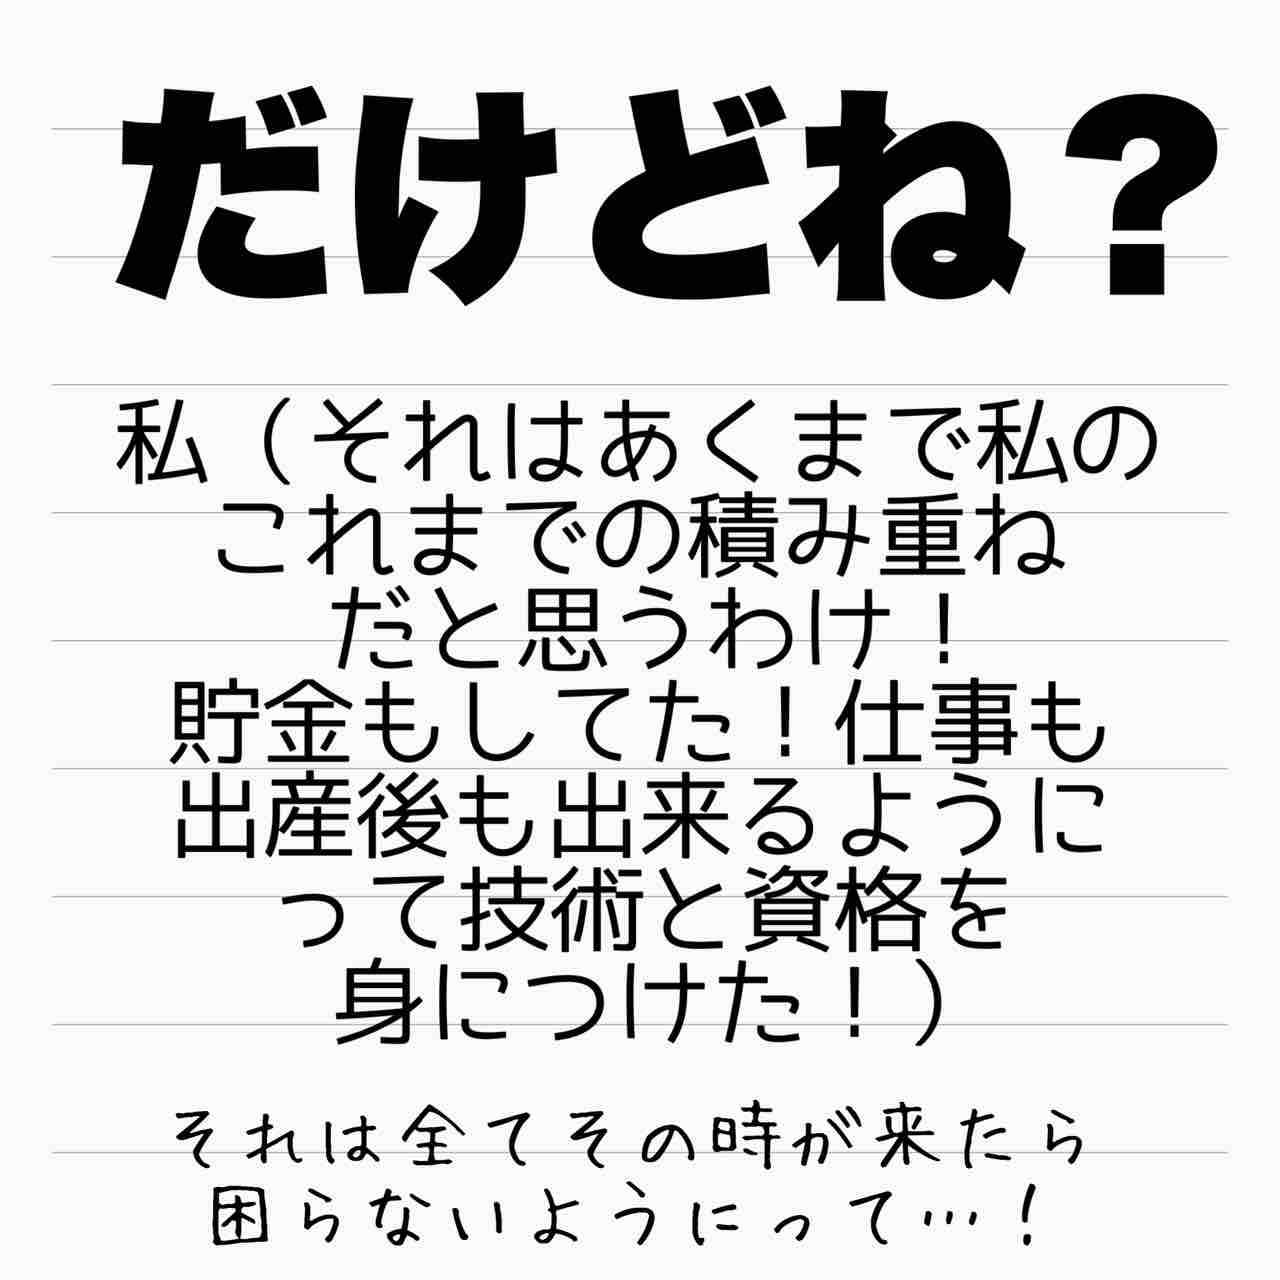 だけどね？
私（それはあくまで私の
これまでの積み重ね
だと思うわけ！
貯金もしてた！仕事も
出産後も出来るように
って技術と資格を
身につけた！）
それは全てその時が来たら
困らないようにって…！